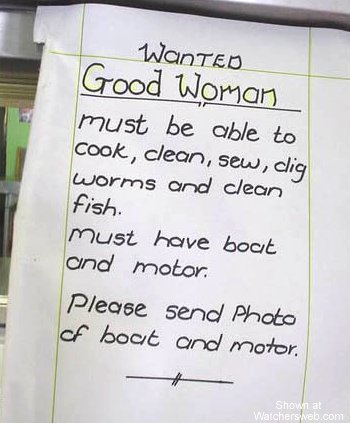 WANTED
Good Woman
must be able to
cook, clean, sew, dig
worms and clean
fish.
must have boat
and motor.
Please send Photo
of boat and motor.
Shown at
Watchersweb.com